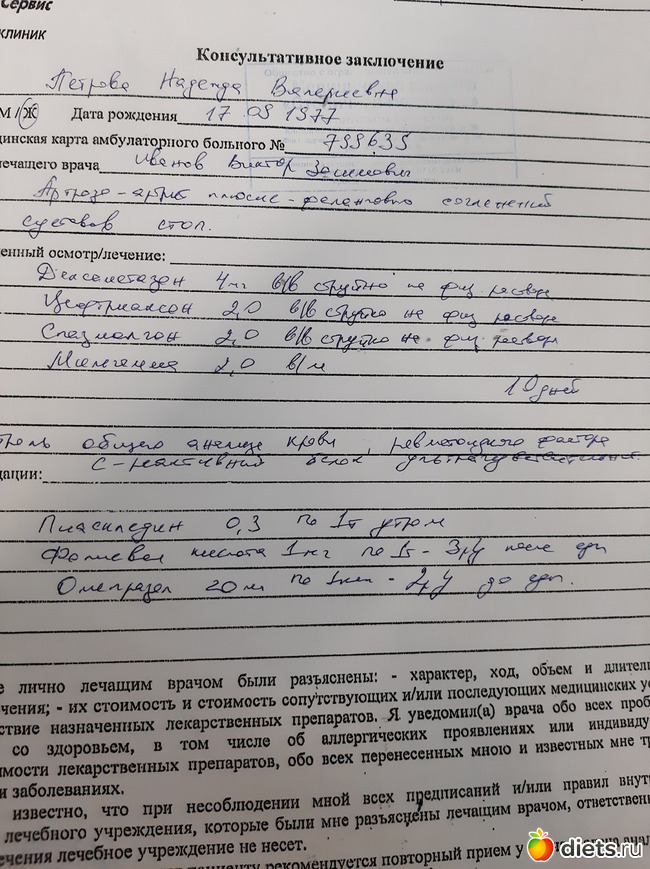 Сервис
клиник
Консультативное заключение
Петрова Надежда Валериевна
М / Ж Дата рождения 17 09 1977
цинская карта амбулаторного больного № 799635
лечащего врача Иванов Виктор
Артрозо-артрит плюсне-фаланговых сочленений
суставов стоп.
енный осмотр/лечение:
Дексаметазон 4мг в/в струйно на физ. растворе
Цефтриаксон 2,0 в/в струйно на физ. растворе
Спазмалгон 2,0 в/в струйно на физ. растворе
Мильгамма 2,0 в/м
10 дней
троль общего анализа крови, ревматоидного фактора
С-реактивный белок ультрачувствительный
дации:
Пиаскледин 0,3 по 1т утром
Фолиевая кислота 1мг по 1т - 3р/д после еды
Омепразол 20м по 1кап - 2р/д до еды.
е лично лечащим врачом были разъяснены: - характер, ход, объем и длитель
чения; - их стоимость и стоимость сопутствующих и/или последующих медицинских ус
ствие назначенных лекарственных препаратов. Я уведомил(а) врача обо всех проб
со здоровьем, в том числе об аллергических проявлениях или индивиду
имости лекарственных препаратов, обо всех перенесенных мною и известных мне тр
и заболеваниях.
известно, что при несоблюдении мной всех предписаний и/или правил внутр
лечебного учреждения, которые были мне разъяснены лечащим врачом, ответствен
ечения лечебное учреждение не несет.
пациенту рекомендуется повторный прием у
diets.ru